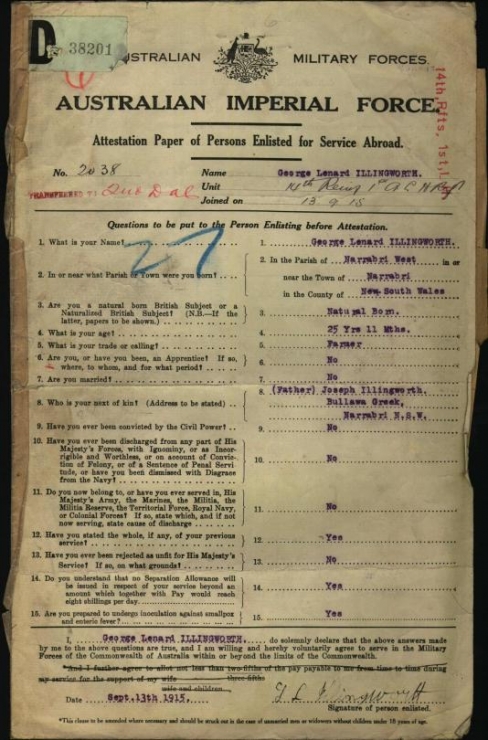 D 38201
AUSTRALIAN MILITARY FORCES.
AUSTRALIAN IMPERIAL FORCE.
14th Rfts, 1st L.
Attestation Paper of Persons Enlisted for Service Abroad.
No. 2038 Name George Lenard ILLINGWORTH.
Unit 14th Rein 1st A L H Regt
TRANSFERRED TO 2nd D.a.C. Joined on 13 9 15
Questions to be put to the Person Enlisting before Attestation.
27
1. What is your Name? 1. George Lenard ILLINGWORTH.
2. In or near what Parish or Town were you born? 2. In the Parish of Narrabri West in or
near the Town of Narrabri
in the County of New South Wales
3. Are you a natural born British Subject or a
Naturalized British Subject? (N.B.—If the
latter, papers to be shown.) 3. Natural Born.
4. What is your age? 4. 25 Yrs 11 Mths.
5. What is your trade or calling? 5. Farmer
6. Are you, or have you been, an Apprentice? If so,
where, to whom, and for what period? 6. No
7. Are you married? 7. No
8. Who is your next of kin? (Address to be stated) 8. (Father) Joseph Illingworth.
Bullawa Creek,
Narrabri N.S.W.
9. Have you ever been convicted by the Civil Power? 9. No
10. Have you ever been discharged from any part of His
Majesty's Forces, with Ignominy, or as Incor-
rigible and Worthless, or on account of Convic-
tion of Felony, or of a Sentence of Penal Servi-
tude, or have you been dismissed with Disgrace
from the Navy? 10. No
11. Do you now belong to, or have you ever served in, His
Majesty's Army, the Marines, the Militia, the
Militia Reserve, the Territorial Force, Royal Navy,
or Colonial Forces? If so, state which, and if not
now serving, state cause of discharge 11. No
12. Have you stated the whole, if any, of your previous
service? 12. Yes
13. Have you ever been rejected as unfit for His Majesty's
Service? If so, on what grounds? 13. No
14. Do you understand that no Separation Allowance will
be issued in respect of your service beyond an
amount which together with Pay would reach
eight shillings per day. 14. Yes
15. Are you prepared to undergo inoculation against smallpox
and enteric fever? 15. Yes
I, George Lenard ILLINGWORTH. do solemnly declare that the above answers made
by me to the above questions are true, and I am willing and hereby voluntarily agree to serve in the Military
Forces of the Commonwealth of Australia within or beyond the limits of the Commonwealth.
*And I further agree to allot not less than two-fifths of the pay payable to me from time to time during
my service for the support of my wife three-fifths
wife and children.
Date Sept.13th 1915. G L Illingworth
Signature of person enlisted.
*This clause to be amended where necessary and should be struck out in the case of unmarried men or widowers without children under 18 years of age.